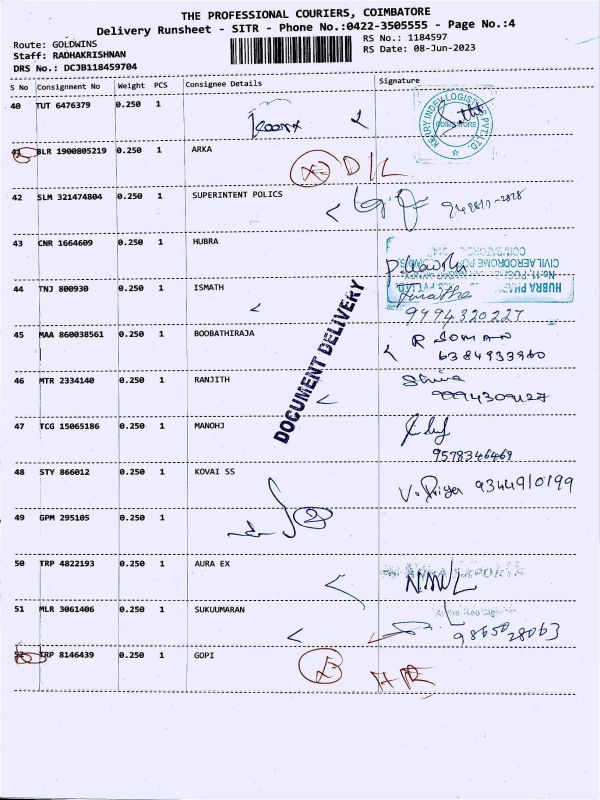 THE PROFESSIONAL COURIERS, COIMBATORE
Delivery Runsheet - SITR - Phone No.:0422-3505555 - Page No.:4
Route: GOLDWINS
RS No.: 1184597
Staff: RADHAKRISHNAN
RS Date: 08-Jun-2023
DRS No.: DCJB118459704
S No Consignment No Weight PCS Consignee Details Signature
40 TUT 6476379 0.250 1
KERRY INDEV LOGISTICS PVT. LTD.
COIMBATORE
41 BLR 1900805219 0.250 1 ARKA
D/L
42 SLM 321474804 0.250 1 SUPERINTENT POLICS
43 CNR 1664609 0.250 1 HUBRA
44 TNJ 800930 0.250 1 ISMATH
9994320227
45 MAA 860038561 0.250 1 BOOBATHIRAJA
R SOMAN
6384933960
DOCUMENT DELIVERY
46 MTR 2334140 0.250 1 RANJITH
Shiva
9994309127
47 TCG 15065186 0.250 1 MANOHJ
9578346469
48 STY 866012 0.250 1 KOVAI SS
V. Priya 9344910199
49 GPM 295105 0.250 1
2
50 TRP 4822193 0.250 1 AURA EX
51 MLR 3061406 0.250 1 SUKUUMARAN
9865028063
52 TRP 8146439 0.250 1 GOPI